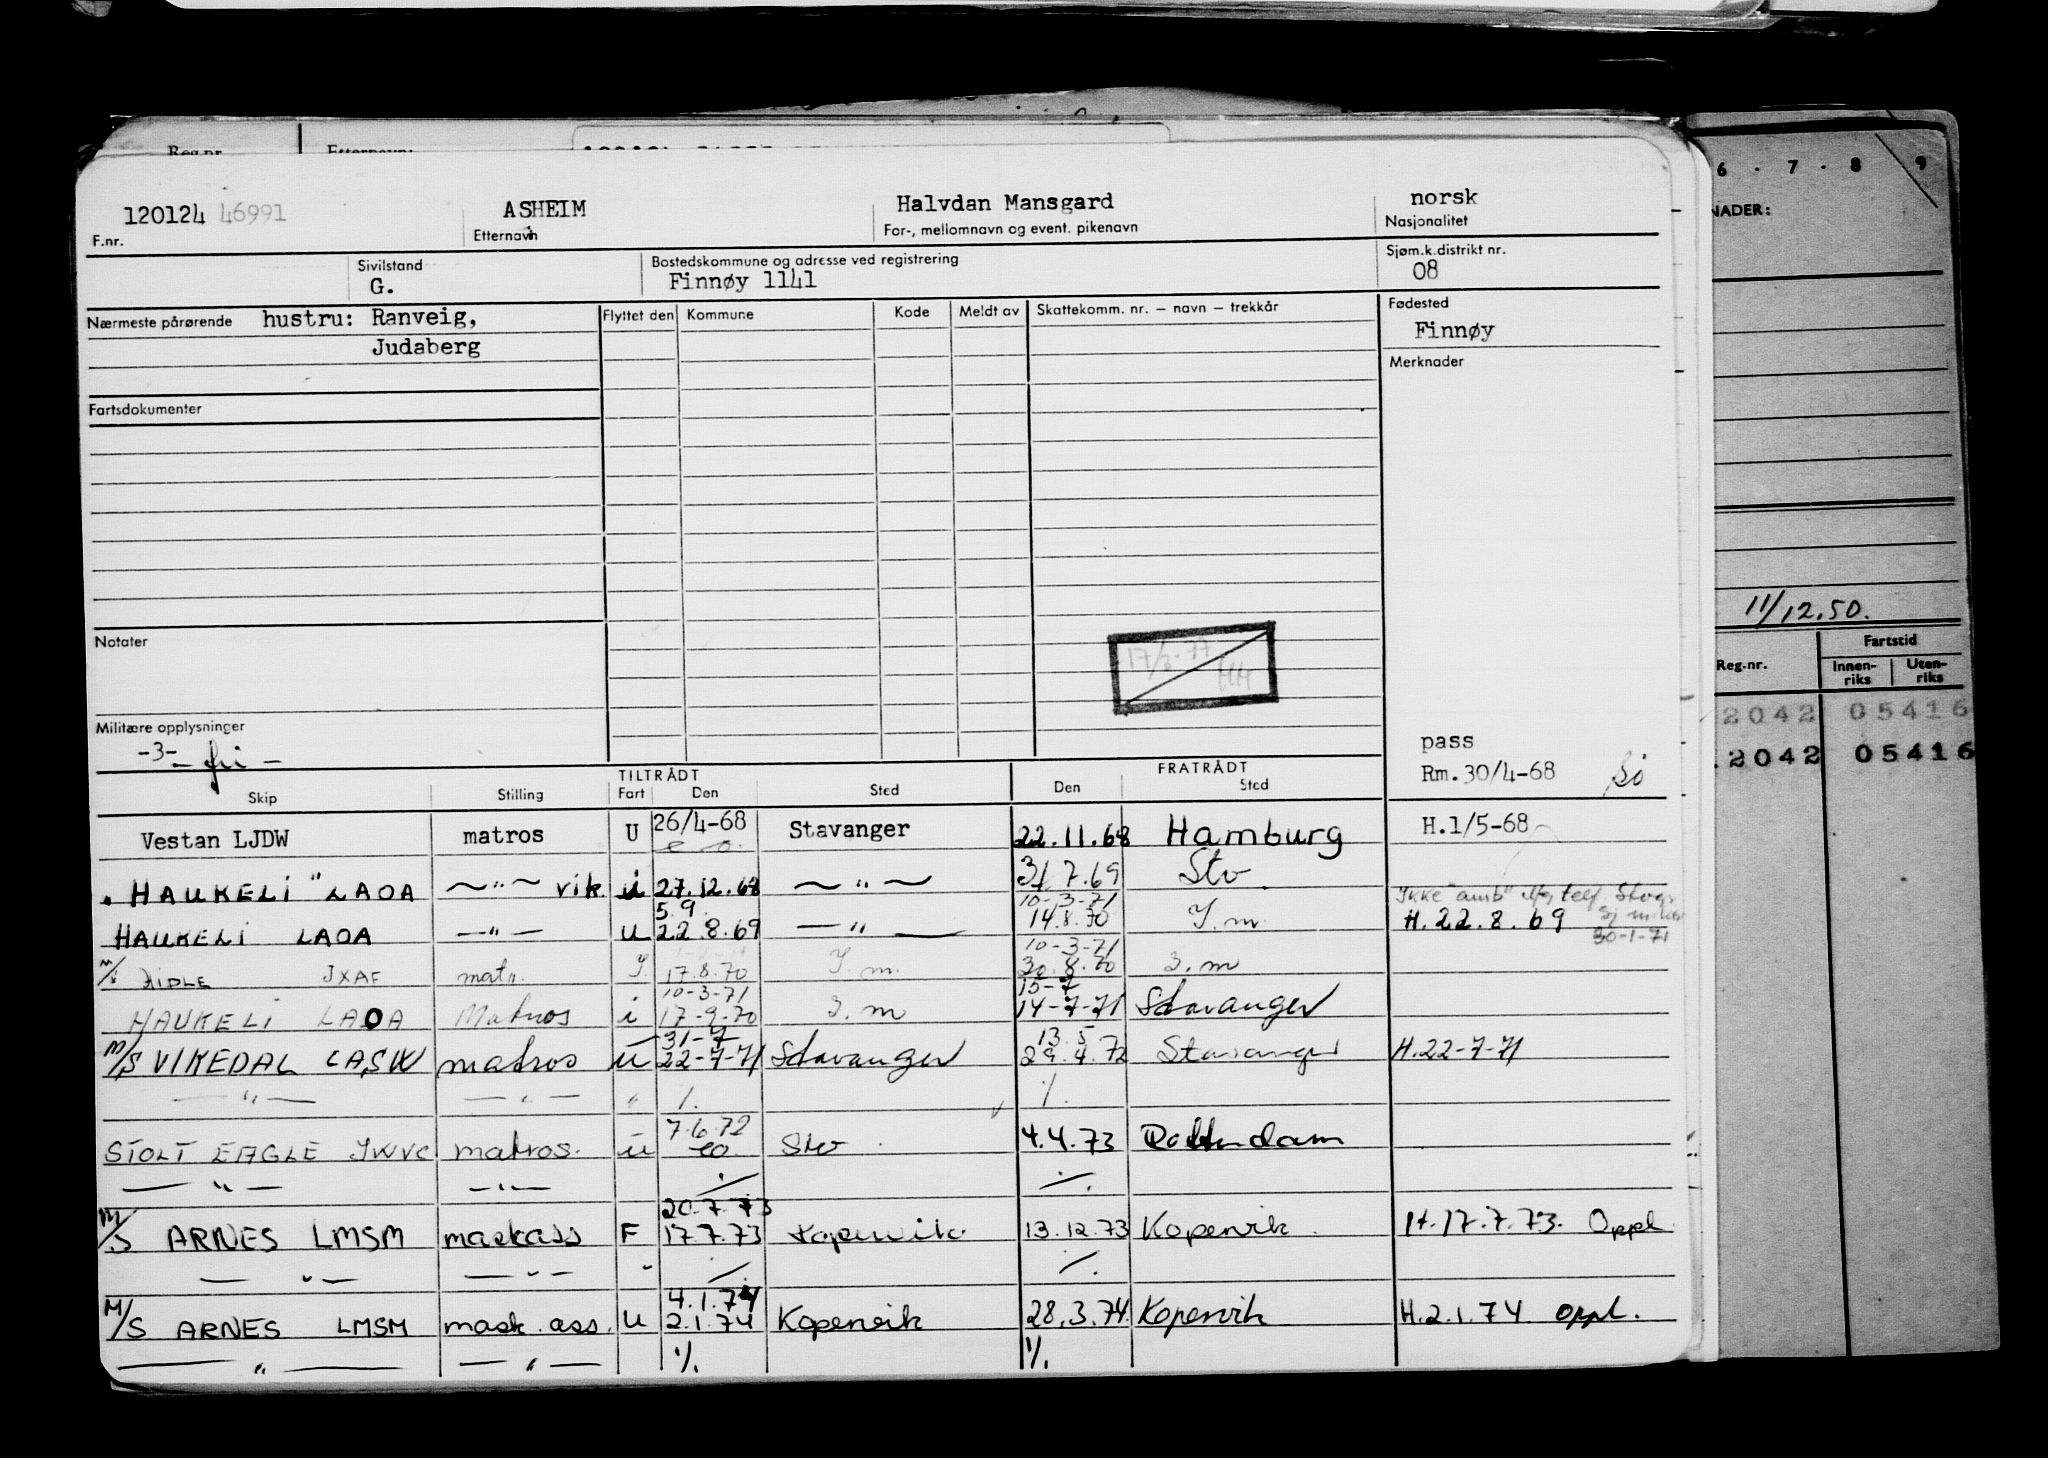 Reg.nr. Etternavn:
120124 46991 ASHEIM Halvdan Mansgard norsk
F.nr. Etternavn For-, mellomnavn og event. pikenavn Nasjonalitet
Sivilstand Bostedskommune og adresse ved registrering Sjøm.k.distrikt nr.
G. Finnøy 1141 08
Nærmeste pårørende hustru: Ranveig, Flyttet den Kommune Kode Meldt av Skattekomm. nr. – navn – trekkår Fødested
Judaberg Finnøy
Merknader
Fartsdokumenter
Notater
17/3-77
HH
Militære opplysninger
-3- – fri – pass
Rm.30/4-68
TILTRÅDT FRATRÅDT
Skip Stilling Fart Den Sted Den Sted
Vestan LJDW matros U 26/4-68 Stavanger 22.11.68 Hamburg H.1/5-68
"HAUKELI" LAOA —"— vik. i 27.12.68 —"— 31.7.69 Stv
5.9. 10-3-71 Ikke "amb" telf
HAUKELI LAOA —"— U 22.8.69 —"— 14.8.70 I.m. H.22.8.69
30-1-71
10-3-71
M/S AIDLE JXAF matr. I. 17.8.70 I.m. 30.8.70 I.m
10-3-71 15-7
HAUKELI LAOA Matros i 17-9-70 I.m 14-7-71 Stavanger
31-7 13.5
M/S VIKEDAL LASW matros U 22-7-71 Stavanger 29.4.72 Stavanger H.22-7-71
—"— —"— " ./. ./.
7.6.72
STOLT EAGLE JWVC matros. U eo. Stv 4.4.73 Rotterdam
—"— —"— ./. ./.
20.7.73
M/S ARNES LMSM maskass F 17.7.73 Kopervik 13.12.73 Kopervik H.17.7.73. Oppl.
—"— —"— " ./. ./.
4.1.74
M/S ARNES LMSM mask.ass. U 2.1.74 Kopervik 28.3.74 Kopervik H.2.1.74 Oppl.
—"— —"— ./. ./.
6 . 7 . 8 . 9
NADER:
11/12.50.
Reg.nr. Fartstid
Innenriks Utenriks
2042 05416
2042 05416